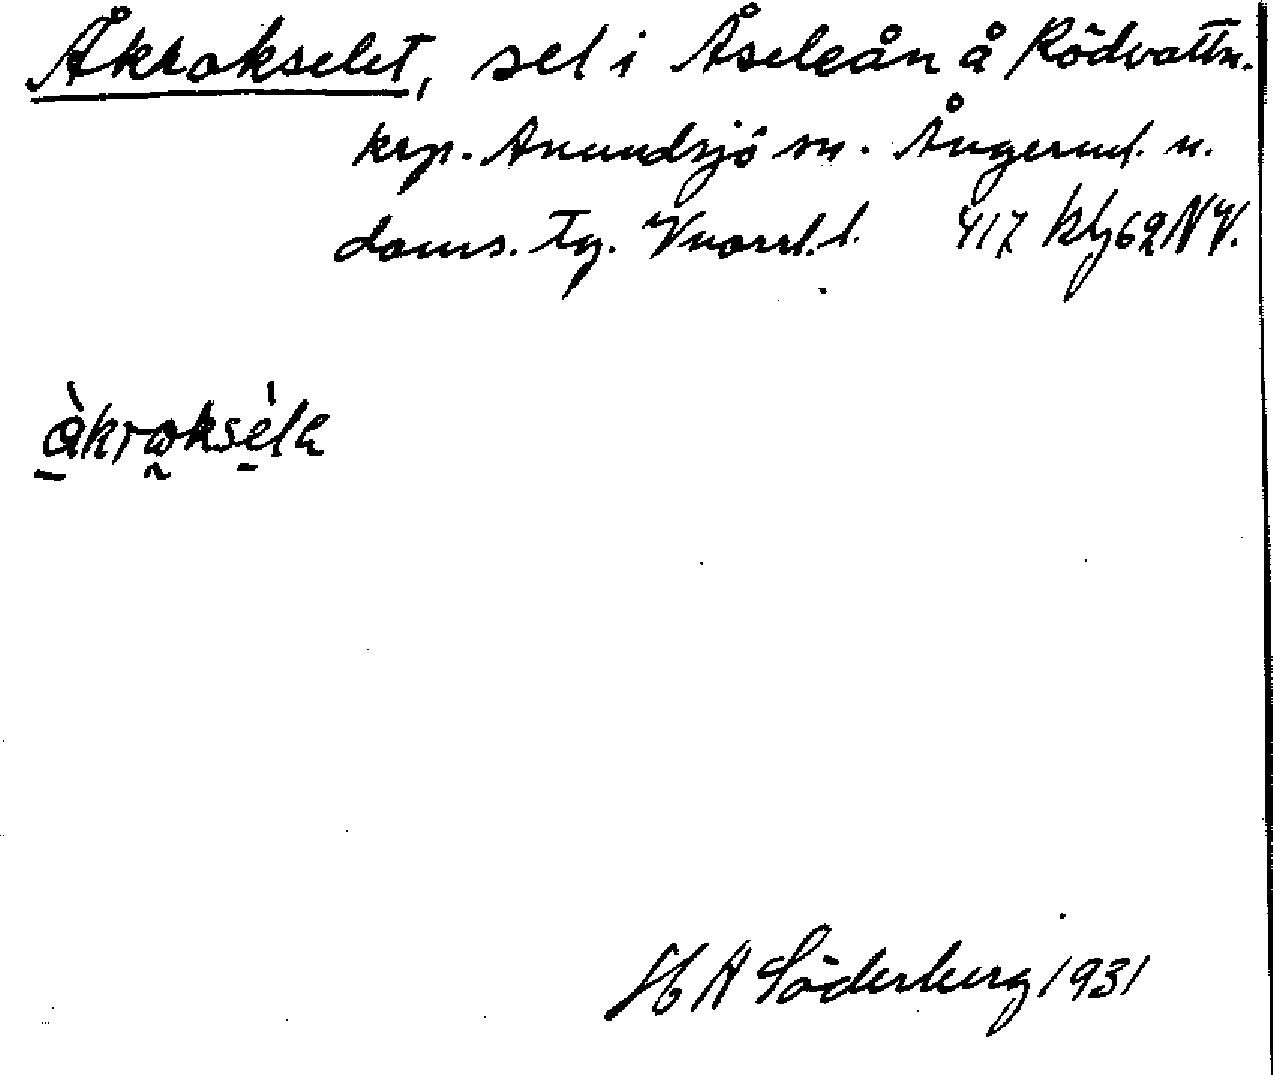 Åkrokselet, sel i Åseleån å Rödvattn.
krp. Anundsjö sn. Ångerml. n.
doms. Tg. Vnorrl. l. 417 Kbf 62 NV.
åkrokséla
H A Söderberg 1931